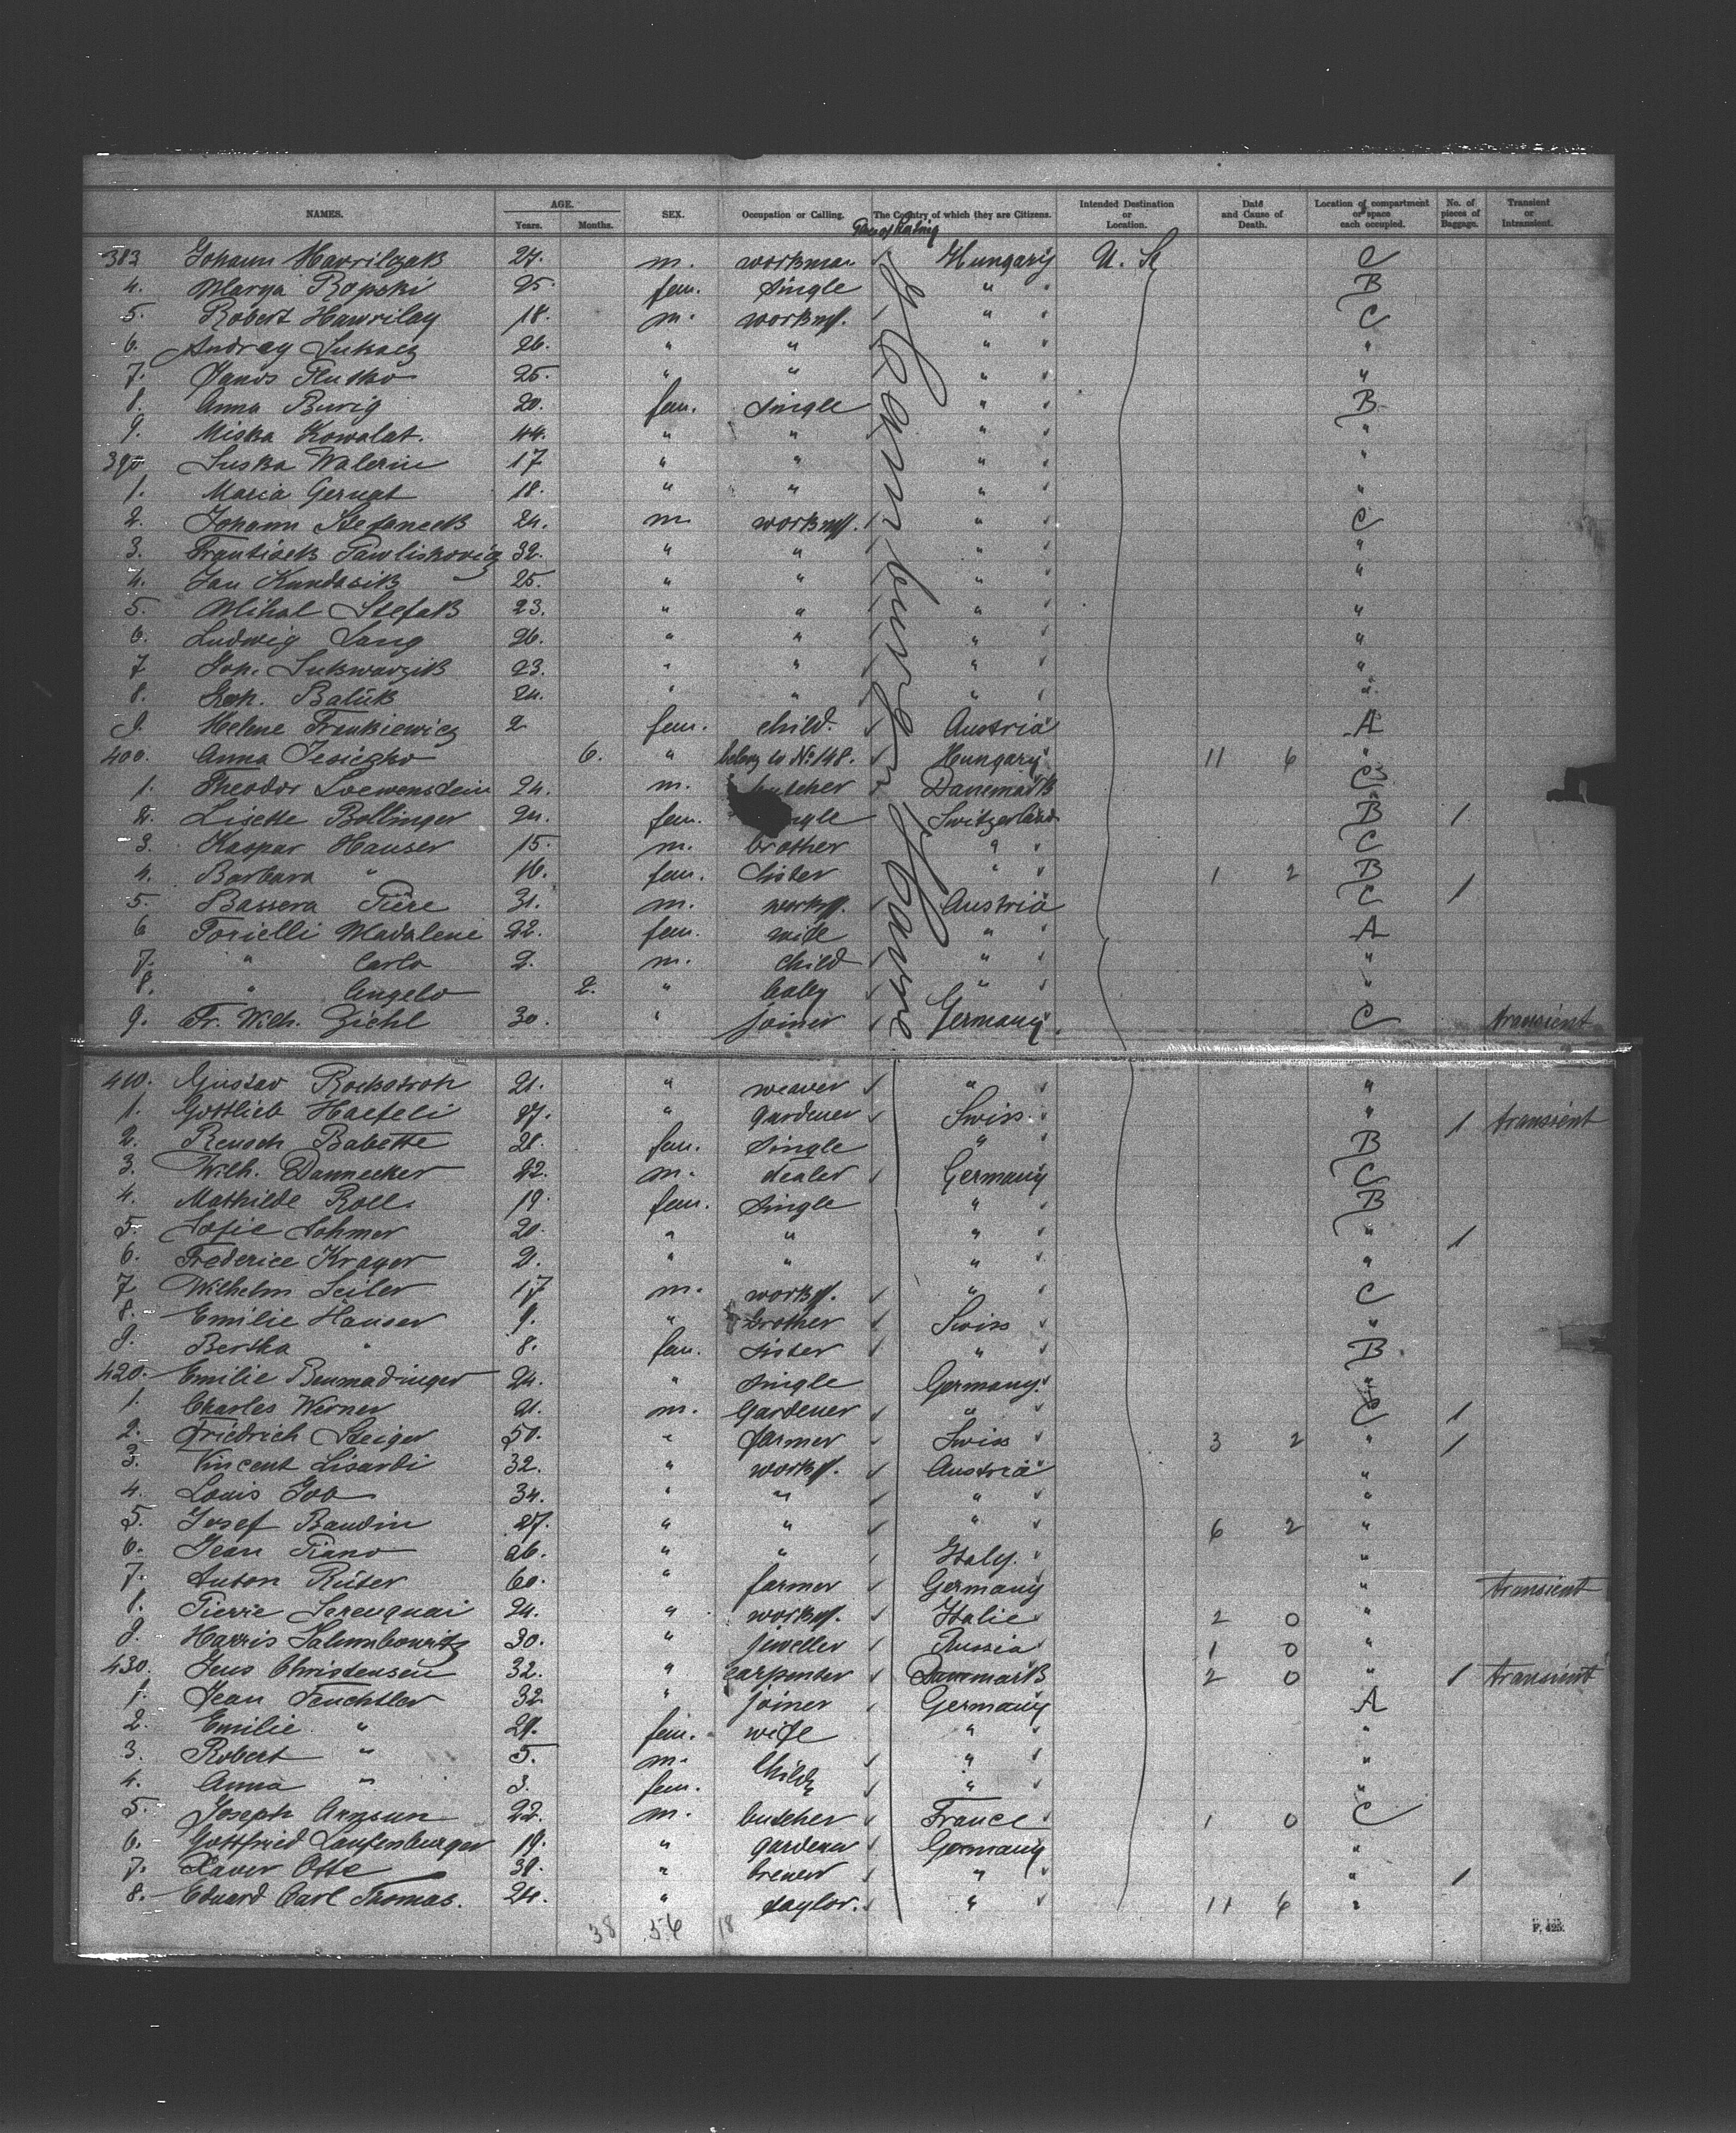 NAMES. AGE. Years. Months. SEX. Occupation or Calling. The Country of which they are Citizens. Intended Destination or Location. Date and Cause of Death. Location of compartment or space each occupied. No. of pieces of Baggage. Transient or Intransient.
383 Johann Havrilczak 27. m. workman Hungary U. St. C
4. Marya Ropski 25. fem. single " B
5. Robert Hawrilay 18. m. workm. " C
6. Andray Lukacz 26. " " " "
7. Janos Plutko 25. " " " "
8. Anna Burig 20. fem. single " B
9. Miska Kowalat. 44. " " " "
390 Suska Walerin 17 " " " "
1. Maria Gernat 18. " " " "
2. Johann Stefancek 24. m workm. " C
3. Frantisek Pawliskovicz 32. " " " "
4. Jan Kundasik 25. " " " "
5. Mihal Stefak 23. " " " "
6. Ludwig Lang 26. " " " "
7 Jos. Lukwarzik 23. " " " "
8. Joh. Baluk 24. " " " "
9. Helene Frankiewicz 2 fem. child. Austria A
400. Anna Jesiczko 6. " belong to No 148. Hungary 11 6 "
1. Theodor Loewenstein 24. m. butcher Danemark C
2. Lisette Bollinger 24. fem. single Switzerland B 1
3. Kaspar Hauser 15. m. brother " C
4. Barbara " 16. fem. sister " 1 2 B
5. Bassera Piere 31. m. workm. Austria C 1
6 Torielli Madalene 22. fem. wife " A
7. " Carlo 2. m. child " "
8. " Angelo 2. " baby " "
9. Fr. Wilh. Ziehl 30. " joiner Germany C transient
410. Gustav Rockstroh 21. " weaver " "
1. Gottlieb Haefeli 27. " gardener Swiss " 1 transient
2. Reusch Babette 28. fem. single " B
3. Wilh. Dannecker 22. m. dealer Germany C
4. Mathilde Roll. 19. fem. single " B
5. Sofie Sohmer 20. " " " " 1
6. Frederice Krayer 21. " " " "
7 Wilhelm Seiler 17 m. workm. " C
8. Emilie Hauser 9. " brother Swiss "
9. Bertha " 8. fem. sister " B
420. Emilie Benmadinger 24. " single Germany "
1. Charles Werner 21. m. Gardener " C 1
2. Friedrich Steiger 50. " farmer Swiss 3 2 " 1
3. Vincent Lisardi 32. " workm. Austria "
4. Louis Job 34. " " " "
5. Josef Baudin 27. " " " 6 2 "
6. Jean Piano 26. " " Italy. "
7. Anton Rüter 60. " farmer Germany " transient
8. Pierre Serenquai 24. " workm. Italie 2 0 "
9. Harris Salumbowitz 30. " jeweller Russia 1 0 "
430. Jens Christensen 32. " carpenter Danemark 2 0 " 1 transient
1. Jean Feuchtler 32 " joiner Germany A
2. Emilie " 29. fem. wife " "
3. Robert " 5. m. Childr " "
4. Anna " 3. fem. " "
5. Joseph Arysun 22. m. butcher France 1 0 C
6. Gottfried Laufenburger 19. " gardener Germany "
7. Xaver Otte 39. " brewer " " 1
8. Eduard Carl Thomas. 24. " taylor. " 11 6 "
38 56 18
F. 425.